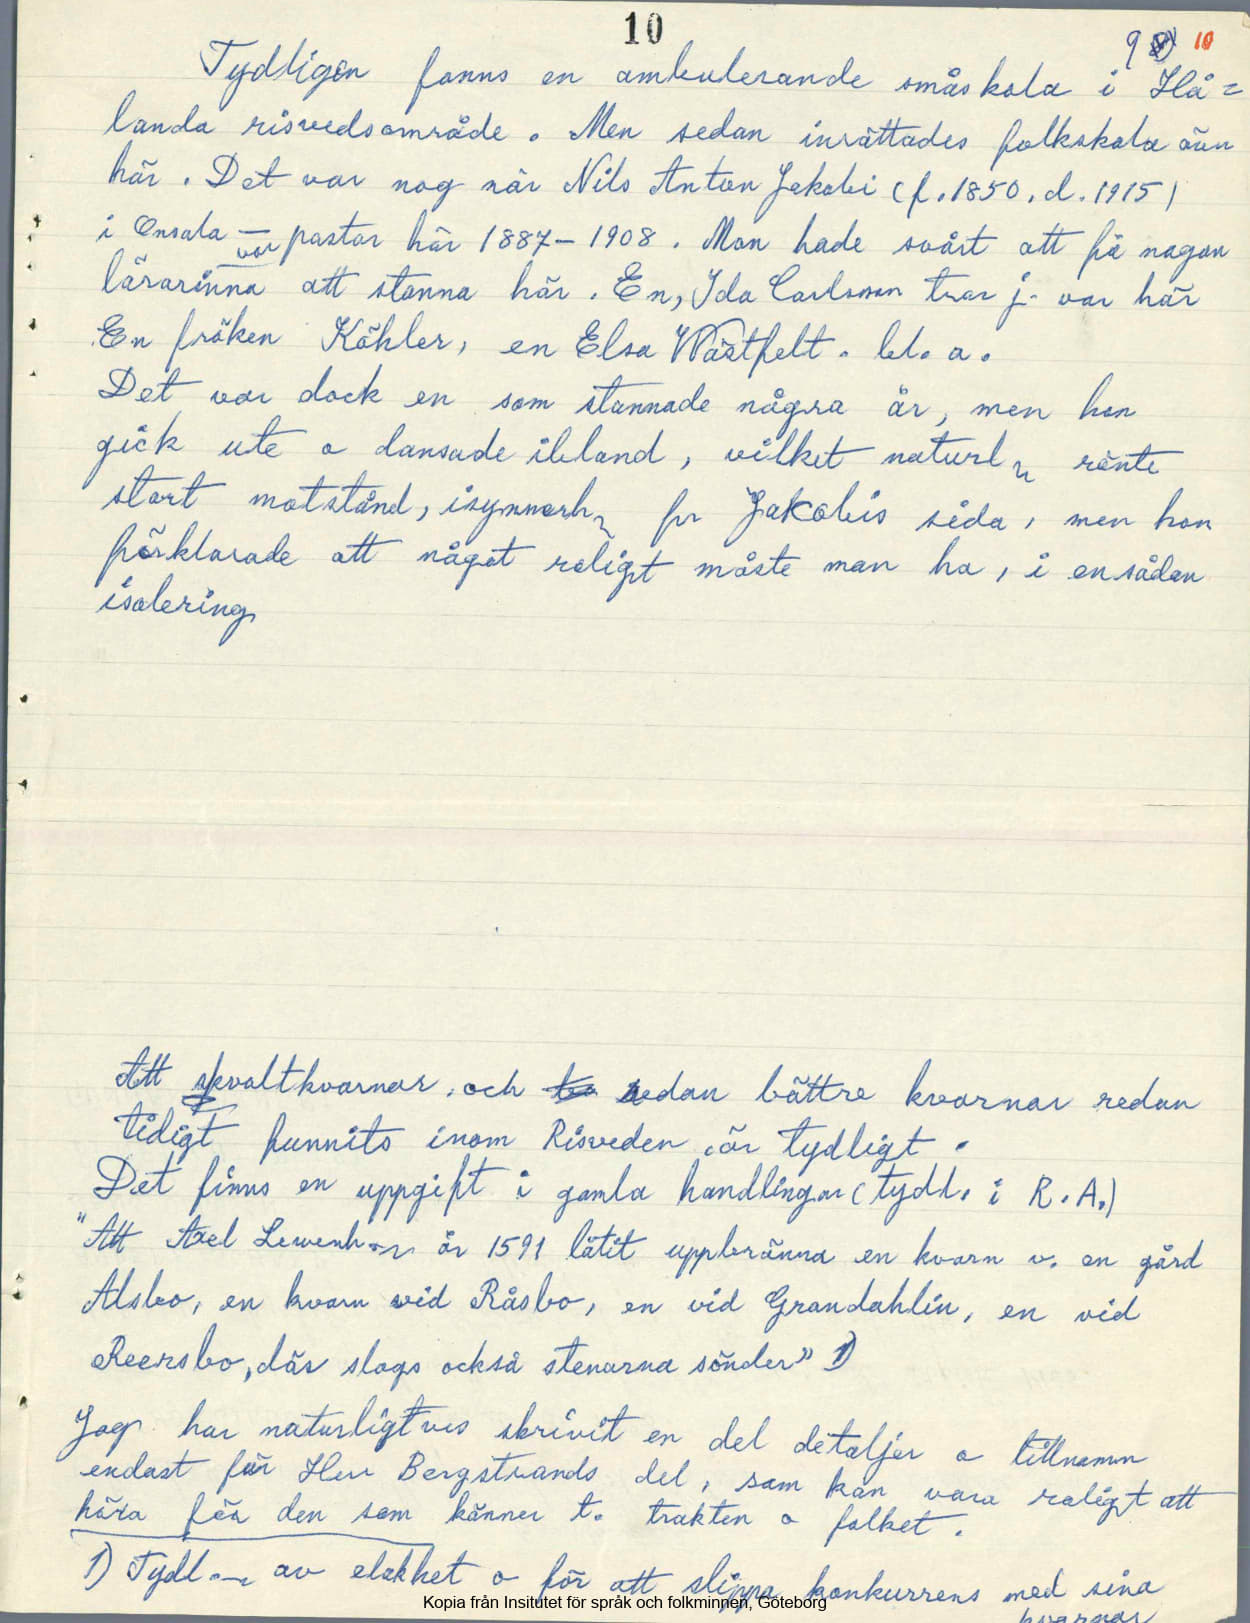 10
9 10
Tydligen fanns en ambulerande småskola i Hå=
landa risvedsområde. Men sedan inrättades folkskola även
här. Det var nog när Nils Anton Jakobi (f. 1850, d. 1915)
i Onsala — var pastor här 1887-1908. Man hade svårt att få någon
lärarinna att stanna här. En, Ida Carlsson tror j. var här
En fröken Köhler, en Elsa Wästfelt. bl. a.
Det var dock en som stannade några år, men hon
gick ute o dansade ibland, vilket naturl rönte
stort motstånd, isynnerh fr Jakobis sida, men hon
förklarade att något roligt måste man ha, i en sådan
isolering
Att skvaltkvarnar och sedan bättre kvarnar redan
tidigt funnits inom Risveden, är tydligt.
Det finns en uppgift i gamla handlingar (tydl. i R.A.)
"Att Axel Lewenh år 1591 låtit uppbränna en kvarn v. en gård
Alsbo, en kvarn vid Råsbo, en vid Grandahlin, en vid
Reersbo, där slogs också stenarna sönder" 1)
Jag har naturligtvis skrivit en del detaljer o tillnamn
endast för Herr Bergstrands del, som kan vara roligt att
höra för den som känner t. trakten o folket.
1) Tydl. av elakhet o för att slippa konkurrens med sina
kvarnar
Kopia från Insitutet för språk och folkminnen, Göteborg